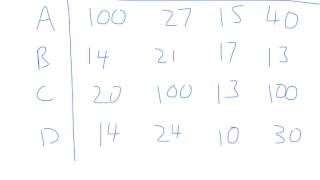 A 100 27 15 40
B 14 21 17 13
C 20 100 13 100
D 14 24 10 30